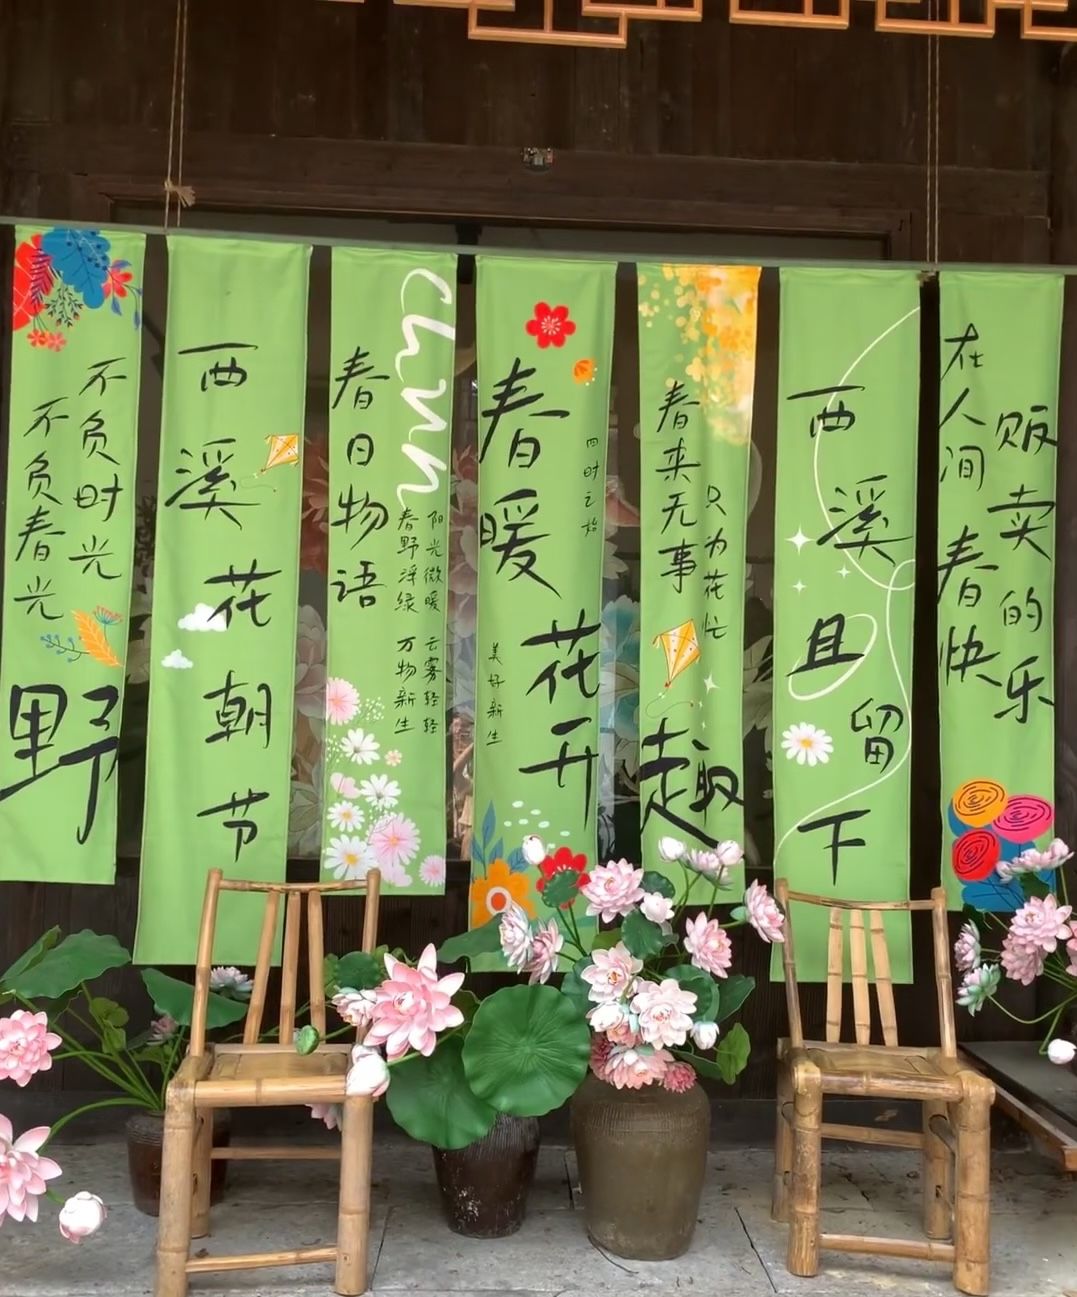 不负时光
不负春光
野
西溪花朝节
chun
春日物语
阳光微暖 云雾轻轻
春野浮绿 万物新生
春暖花开
四时之始
美好新生
春来无事
只为花忙
趣
西溪且留下
在人间
贩卖春的快乐